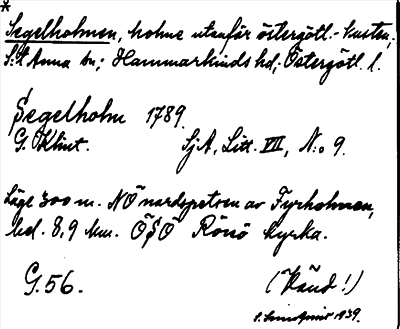 *
Segelholmen, holme utanför östergötl.-kusten,
S:t Anna sn; Hammarkinds hd; Östergötl. l.
Segelholm 1789.
G. Klint. SjA, Litt. VII, N:o 9.
Läge 300 m. NÖ nordspetsen av Fyrholmen,
bel. 8,9 km. ÖSÖ Rönö kyrka.
G. 56. (Vänd!)
1939.